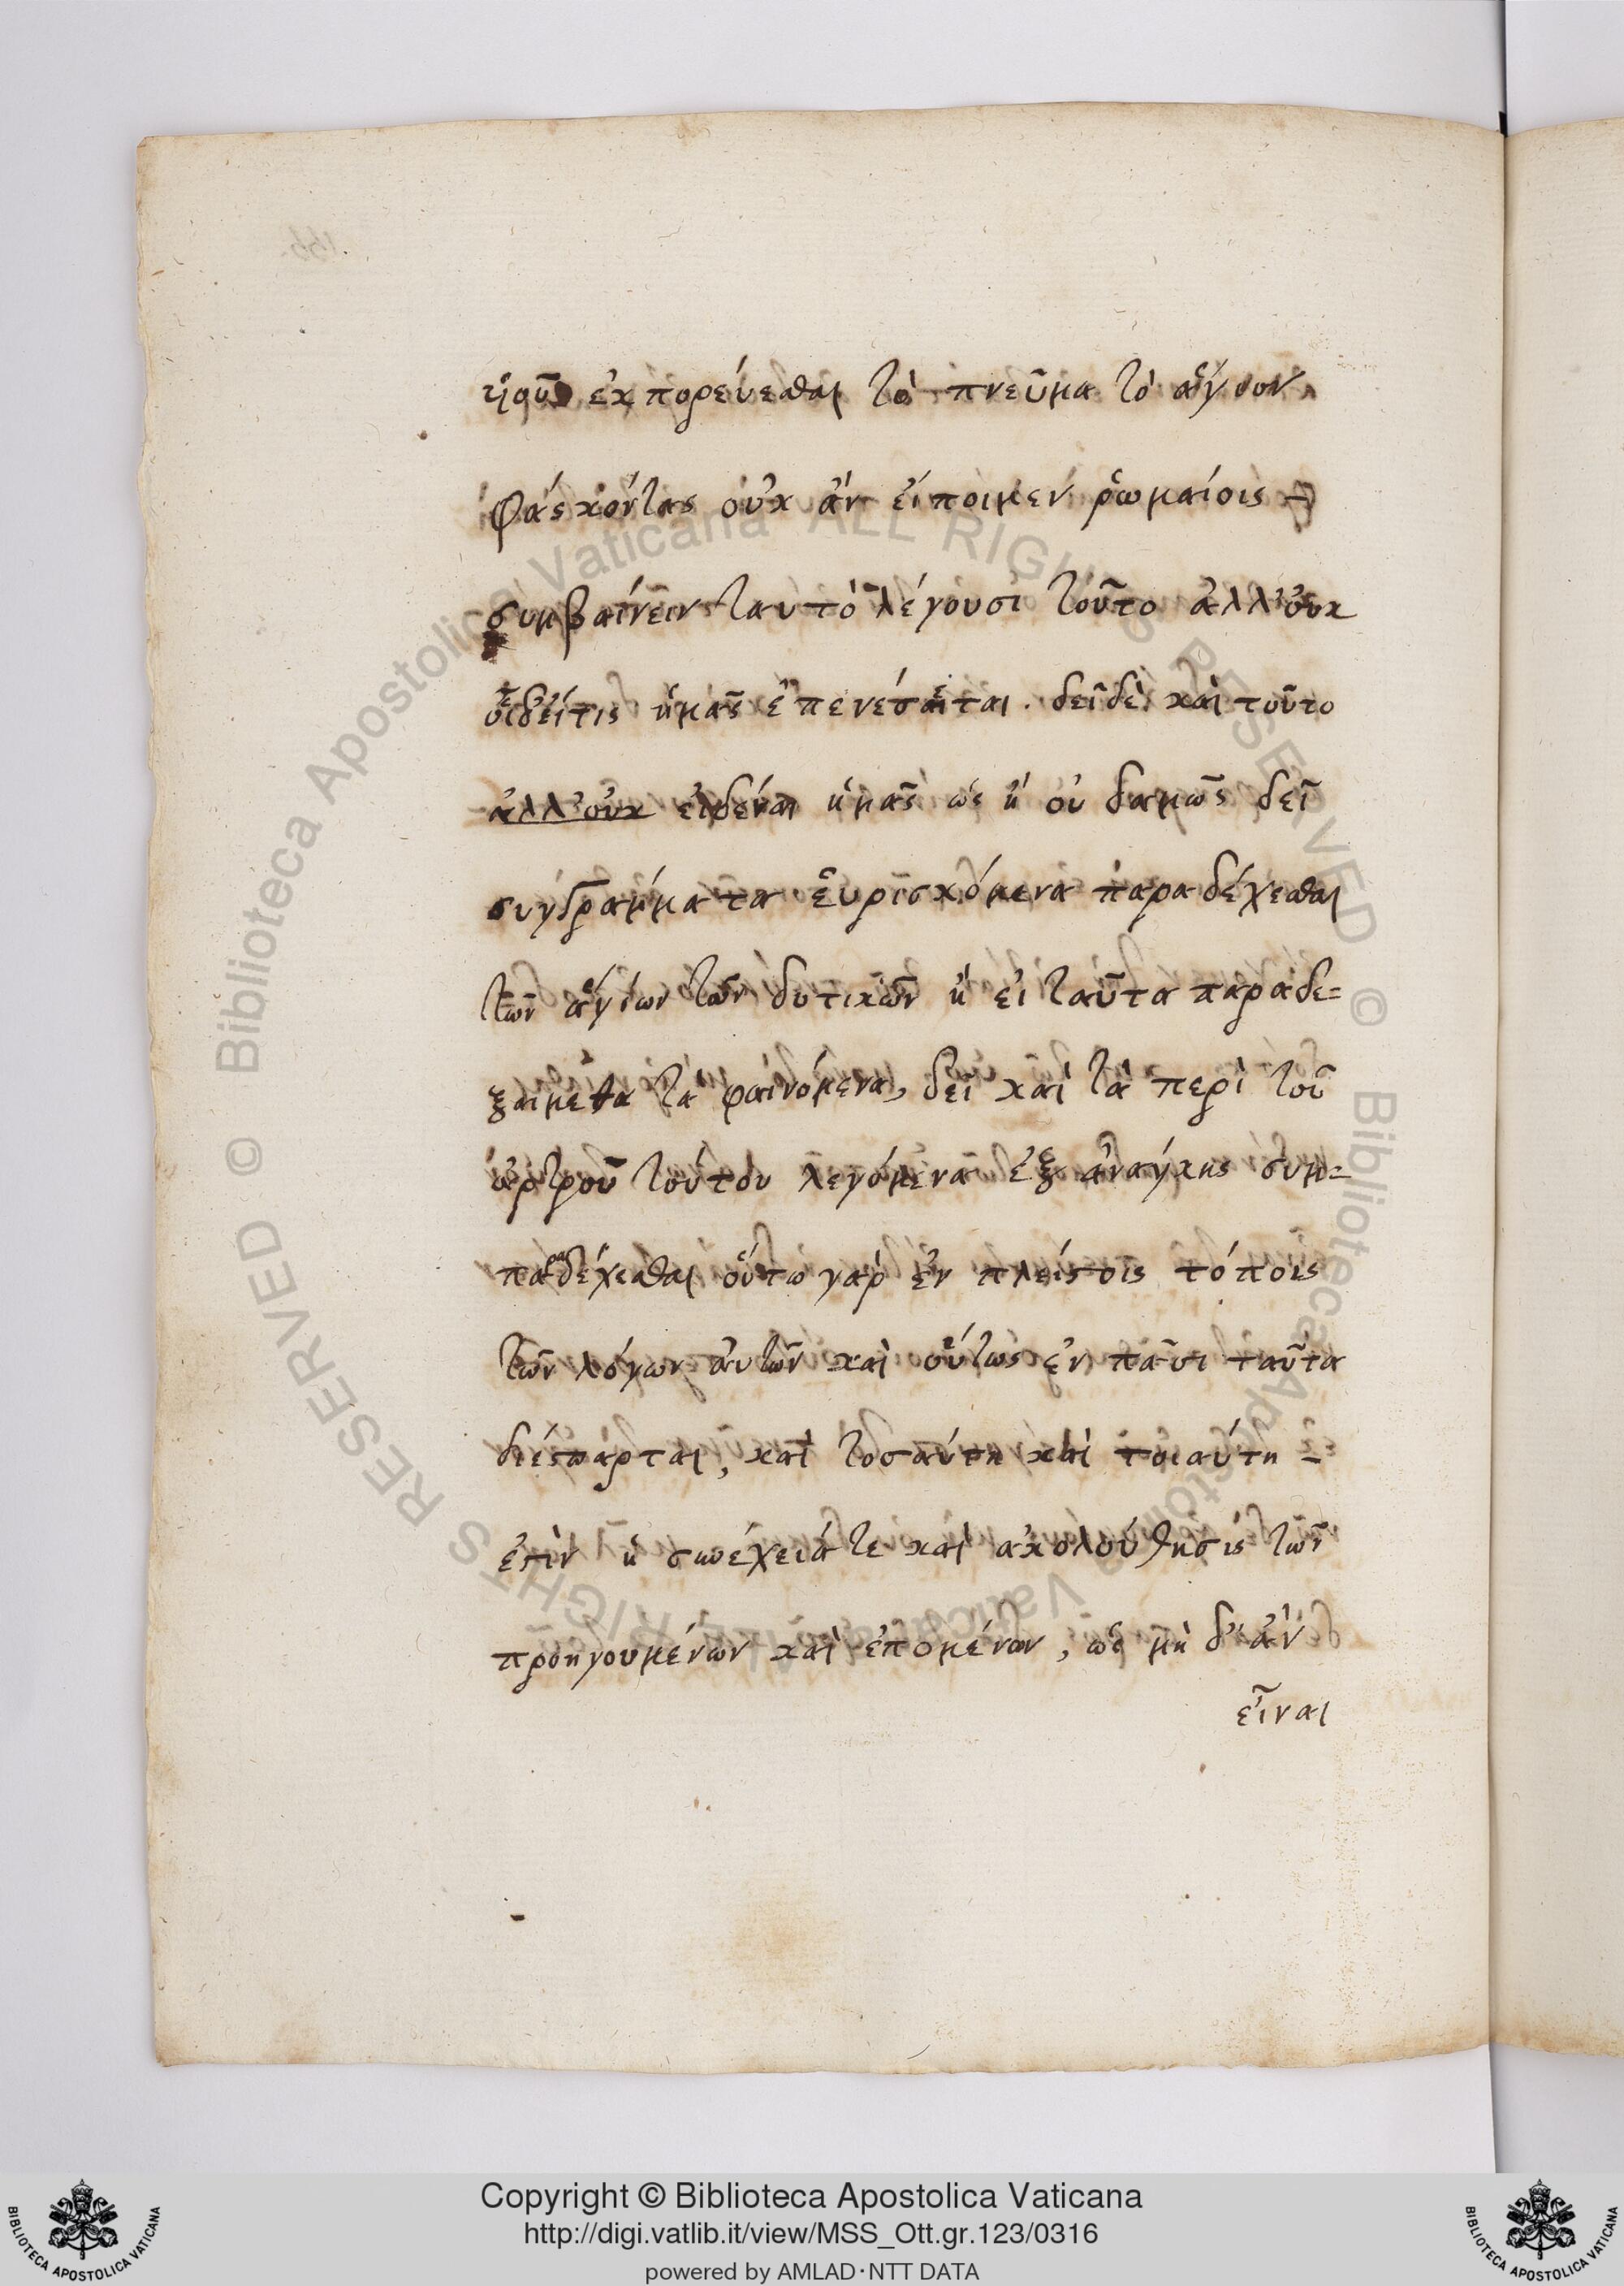 ὑιοῦ ἐκπορέυεσθαι τὸ πνεῦμα τὸ ἅγιον
φάσκοντας οὐκ ἂν εἴποιμεν ῥωμαίοις
συμβαίνειν ταυτὸ λέγουσι τοῦτο ἀλλ' οὐκ
ἡμᾶς δεῖ δὲ καὶ τοῦτο
ἀλλ' οὐκ εἰδέναι ἡμᾶς ὡς ἢ οὐδαμῶς δεῖ
συγγράμματα ἑυρισκόμενα παραδέχεσθαι
τῶν ἁγίων τῶν δυτικῶν ἢ εἰ ταῦτα παραδε=
ξαίμεθα τὰ φαινόμενα, δεῖ καὶ τὰ περὶ τοῦ
τούτου λεγόμενα ἐξ ἀνάγκης συμ=
παραδέχεσθαι οὕτω γὰρ ἐν πλείστοις τόποις
τῶν λόγων ἀυτῶν καὶ οὕτως ἐν πᾶσι ταῦτα
διέσπαρται, καὶ τοσαύτη καὶ τοιαύτη
ἐστὶν ἡ συνέχειά τε καὶ ἀκολούθησις τῶν
προηγουμένων καὶ ἑπομένων, ὡς μὴ δ' ἂν
εἶναι
Copyright © Biblioteca Apostolica Vaticana
http://digi.vatlib.it/view/MSS_Ott.gr.123/0316
powered by AMLAD·NTT DATA